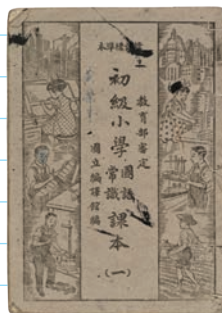 本準標
教育部審定
初級小學
國語
常識
課本
(一)
國立編譯館編